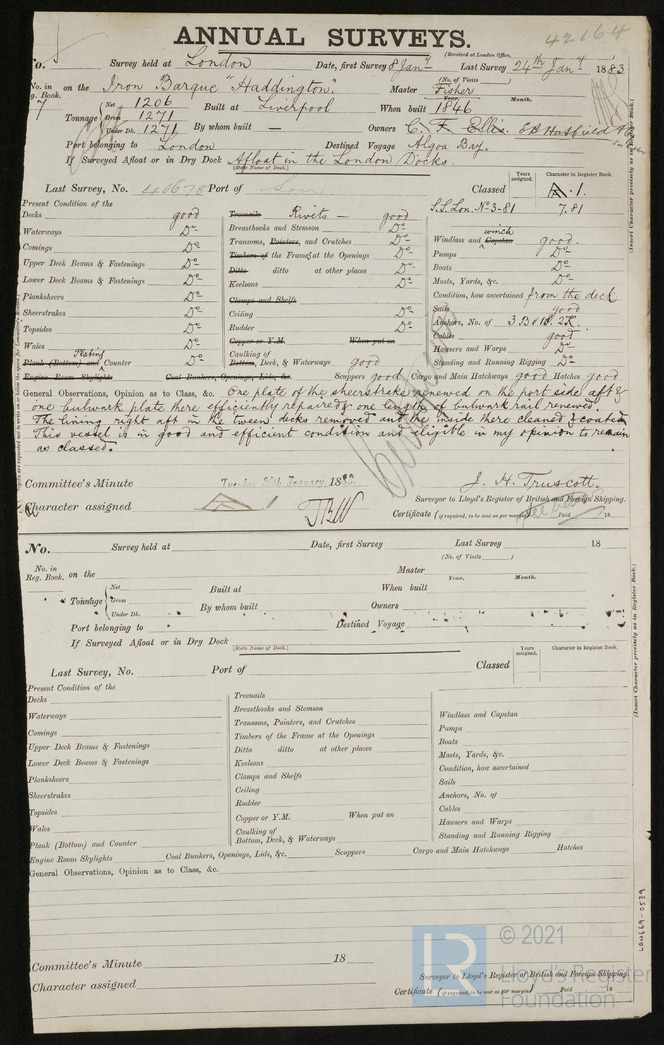 42164
ANNUAL SURVEYS.
(Received at London Office,
No. Survey held at London Date, first Survey 8 Jany Last Survey 24th Jany 1883
(No. of Visits )
No. in Reg. Book. on the Iron Barque "Haddington." Master Fisher
Year. Month.
Tonnage Net 1206 Built at Liverpool When built 1846
Gross 1271
Under Dk. 1271 By whom built — Owners C. F. Ellis.
Port belonging to London Destined Voyage Algoa Bay.
If Surveyed Afloat or in Dry Dock Afloat in the London Docks.
(State Name of Dock.)
Years assigned. Character in Register Book.
Last Survey, No. 40678 Port of Lon Classed A.1.
S.S.Lon. No 3-81 7.81
Present Condition of the
Decks good
Waterways Do
Comings Do
Upper Deck Beams & Fastenings Do
Lower Deck Beams & Fastenings Do
Planksheers Do
Sheerstrakes Do
Topsides Do
Wales Do
Plating
Plank (Bottom) and Counter Do
Engine Room Skylights Coal Bunkers, Openings, Lids, &c.
Treenails Rivits — good
Breasthooks and Stemson Do
Transoms, Pointers, and Crutches Do
Timbers of the Frame at the Openings Do
Ditto ditto at other places Do
Keelsons Do
Clamps and Shelfs
Ceiling Do
Rudder Do
Copper or Y.M. When put on
Caulking of
Bottom, Deck, & Waterways good
Scuppers good Cargo and Main Hatchways good Hatches good
winch
Windlass and Capstan good.
Pumps Do
Boats Do
Masts, Yards, &c. Do
Condition, how ascertained from the deck
Sails good
Anchors, No. of 3.B 1 S. 2K.
Cables good
Hawsers and Warps Do
Standing and Running Rigging Do
General Observations, Opinion as to Class, &c. One plate of the sheerstrake renewed on the port side aft &
one bulwark plate there efficiently repaired & one length of bulwark rail renewed.
The lining right aft in the tween decks removed and the inside there cleaned & coated.
This vessel is in good and efficient condition and eligible in my opinion to remain
as classed.
Committee's Minute Tuesday 30th January, 1883. J. H. Truscott.
Surveyor to Lloyd's Register of British and Foreign Shipping.
Character assigned A 1
Certificate (if required, to be sent as per margin) Paid 18
(Insert Character precisely as in Register Book.)
No. Survey held at Date, first Survey Last Survey 18
(No. of Visits )
No. in Reg. Book. on the Master
Year. Month.
Tonnage Net Built at When built
Gross
Under Dk. By whom built Owners
Port belonging to Destined Voyage
If Surveyed Afloat or in Dry Dock
(State Name of Dock.)
Years assigned. Character in Register Book.
Last Survey, No. Port of Classed
Present Condition of the
Decks
Waterways
Comings
Upper Deck Beams & Fastenings
Lower Deck Beams & Fastenings
Planksheers
Sheerstrakes
Topsides
Wales
Plank (Bottom) and Counter
Engine Room Skylights Coal Bunkers, Openings, Lids, &c. Scuppers Cargo and Main Hatchways Hatches
Treenails
Breasthooks and Stemson
Transoms, Pointers, and Crutches
Timbers of the Frame at the Openings
Ditto ditto at other places
Keelsons
Clamps and Shelfs
Ceiling
Rudder
Copper or Y.M. When put on
Caulking of
Bottom, Deck, & Waterways
Windlass and Capstan
Pumps
Boats
Masts, Yards, &c.
Condition, how ascertained
Sails
Anchors, No. of
Cables
Hawsers and Warps
Standing and Running Rigging
General Observations, Opinion as to Class, &c.
(Insert Character precisely as in Register Book.)
LON669-0539
Committee's Minute 18
Surveyor to Lloyd's Register of British and Foreign Shipping.
Character assigned
Certificate (if required, to be sent as per margin) Paid 18
LR
© 2021
Lloyd's Register
Foundation